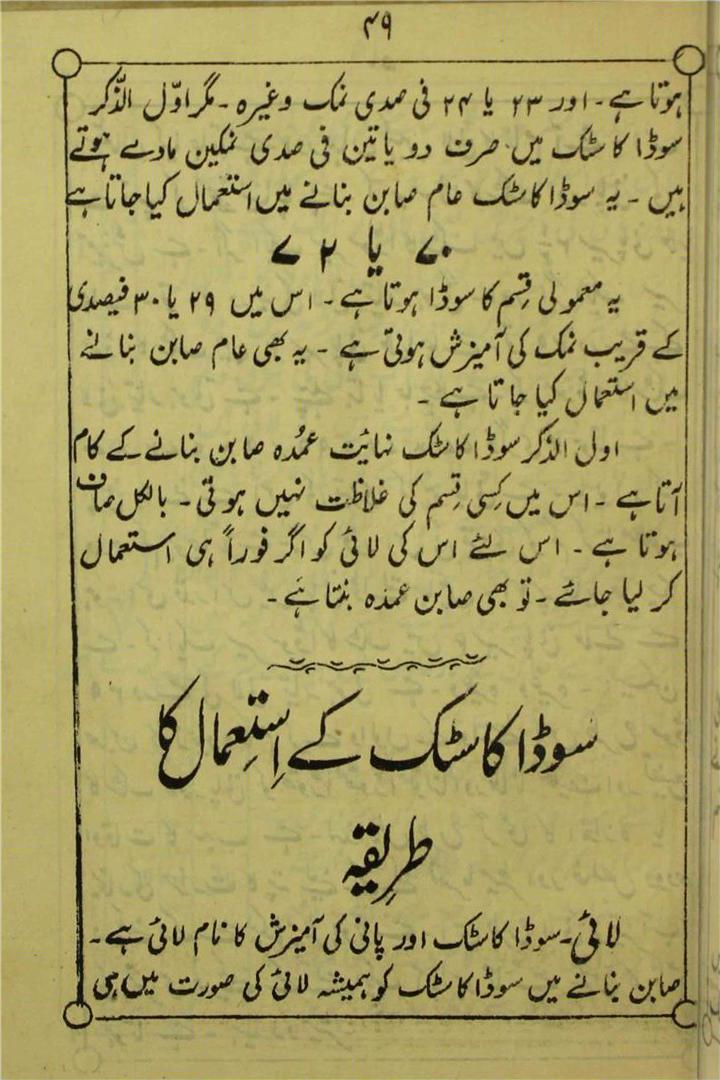 ۴۹
ہوتا ہے۔ اور ۲۳ یا ۲۴ فی صدی نمک وغیرہ۔ مگر اوّل الذّکر
سوڈا کاسٹک میں صرف دو یا تین فی صدی نمکین مادے ہوتے
ہیں۔ یہ سوڈا کاسٹک عام صابن بنانے میں استعمال کیا جاتا ہے
۷۰ یا ۷۲
یہ معمولی قِسم کا سوڈا ہوتا ہے۔ اس میں ۲۹ یا ۳۰ فیصدی
کے قریب نمک کی آمیزش ہوتی ہے۔ یہ بھی عام صابن بنانے
میں استعمال کیا جاتا ہے۔
اول الذکر سوڈا کاسٹک نہائت عمُدہ صابن بنانے کے کام
آتا ہے۔ اس میں کِسی قِسم کی غلاظت نہیں ہوتی۔ بالکل صاف
ہوتا ہے۔ اس لئے اس کی لائی کو اگر فوراً ہی استعمال
کر لیا جائے۔ تو بھی صابن عمدہ بنتا ہَے۔
سوڈا کاسٹک کے اِستِعمال کا
طرِیقہ
لائی۔ سوڈا کاسٹک اور پانی کی آمیزش کا نام لائی ہے۔
صابن بنانے میں سوڈا کاسٹک کو ہمیشہ لائی کی صورت میں ہی